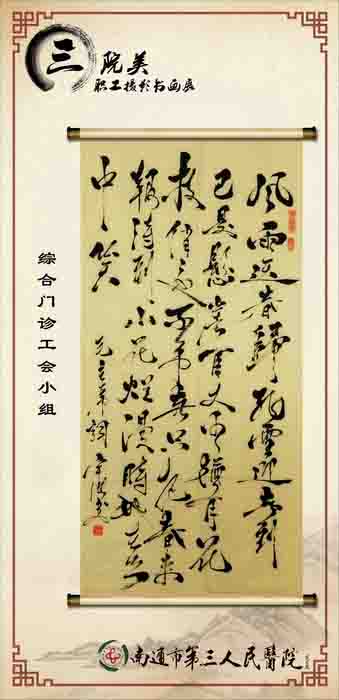 三院美
职工摄影书画展
風雨送春歸飛雪迎春到
已是懸崖百丈冰犹有花
枝俏俏也不争春只把春来
報待到山花爛漫時她在丛
中笑
毛主席詞
综合门诊工会小组
南通市第三人民醫院